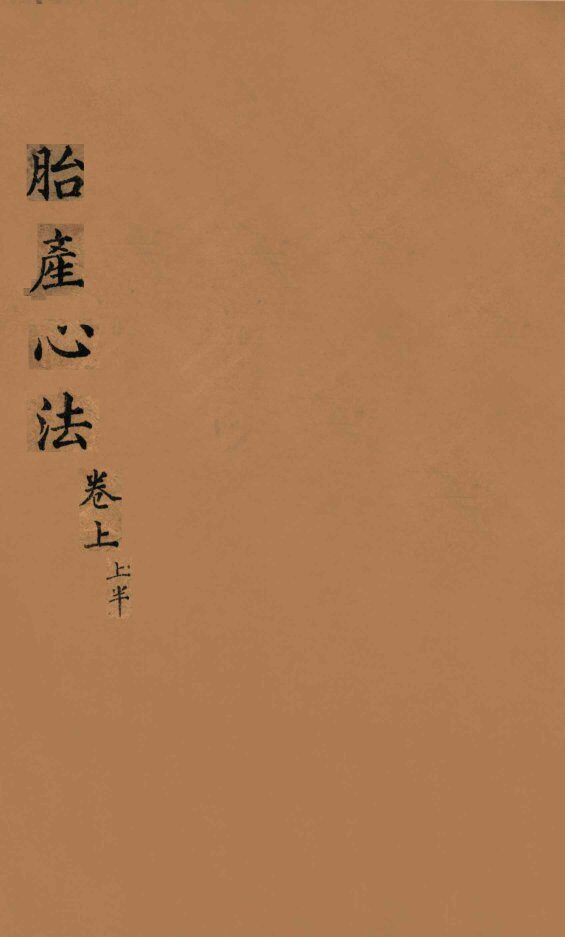 胎產心法
卷上
上半